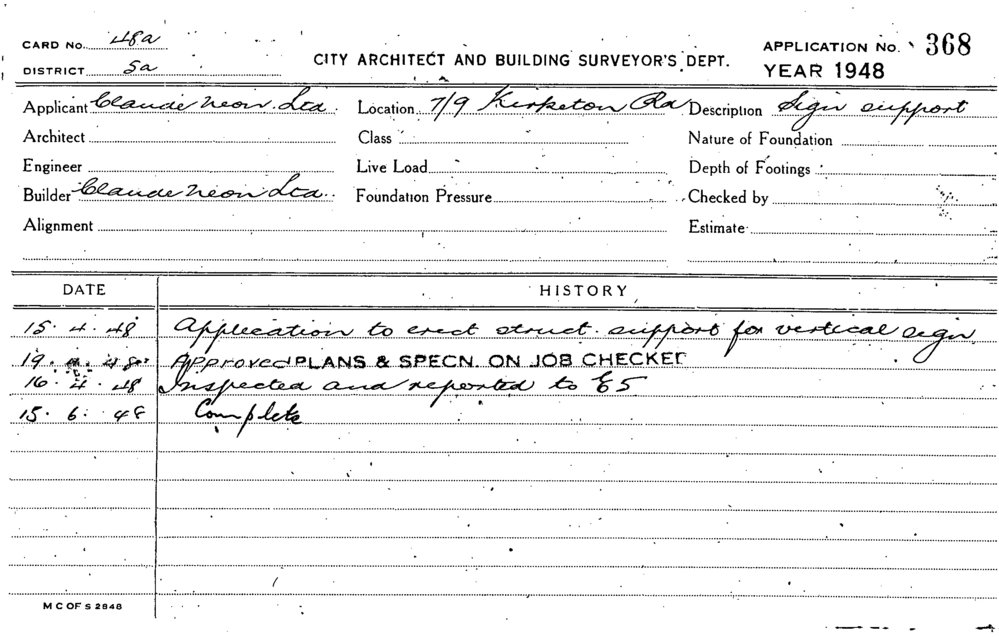 CARD No. 48a
DISTRICT 5a
CITY ARCHITECT AND BUILDING SURVEYOR'S DEPT.
APPLICATION No. 368
YEAR 1948
Applicant Claude Neon Ltd. Location 7/9 Kirketon Rd Description Sign support
Architect Class Nature of Foundation
Engineer Live Load Depth of Footings
Builder Claude Neon Ltd. Foundation Pressure Checked by
Alignment Estimate
DATE HISTORY
15. 4. 48 Application to erect struct. support for vertical sign
19. 48 Approved PLANS & SPECN. ON JOB CHECKED
16. 4. 48 Inspected and reported to E5
15. 6. 48 Complete
M C OF S 2848